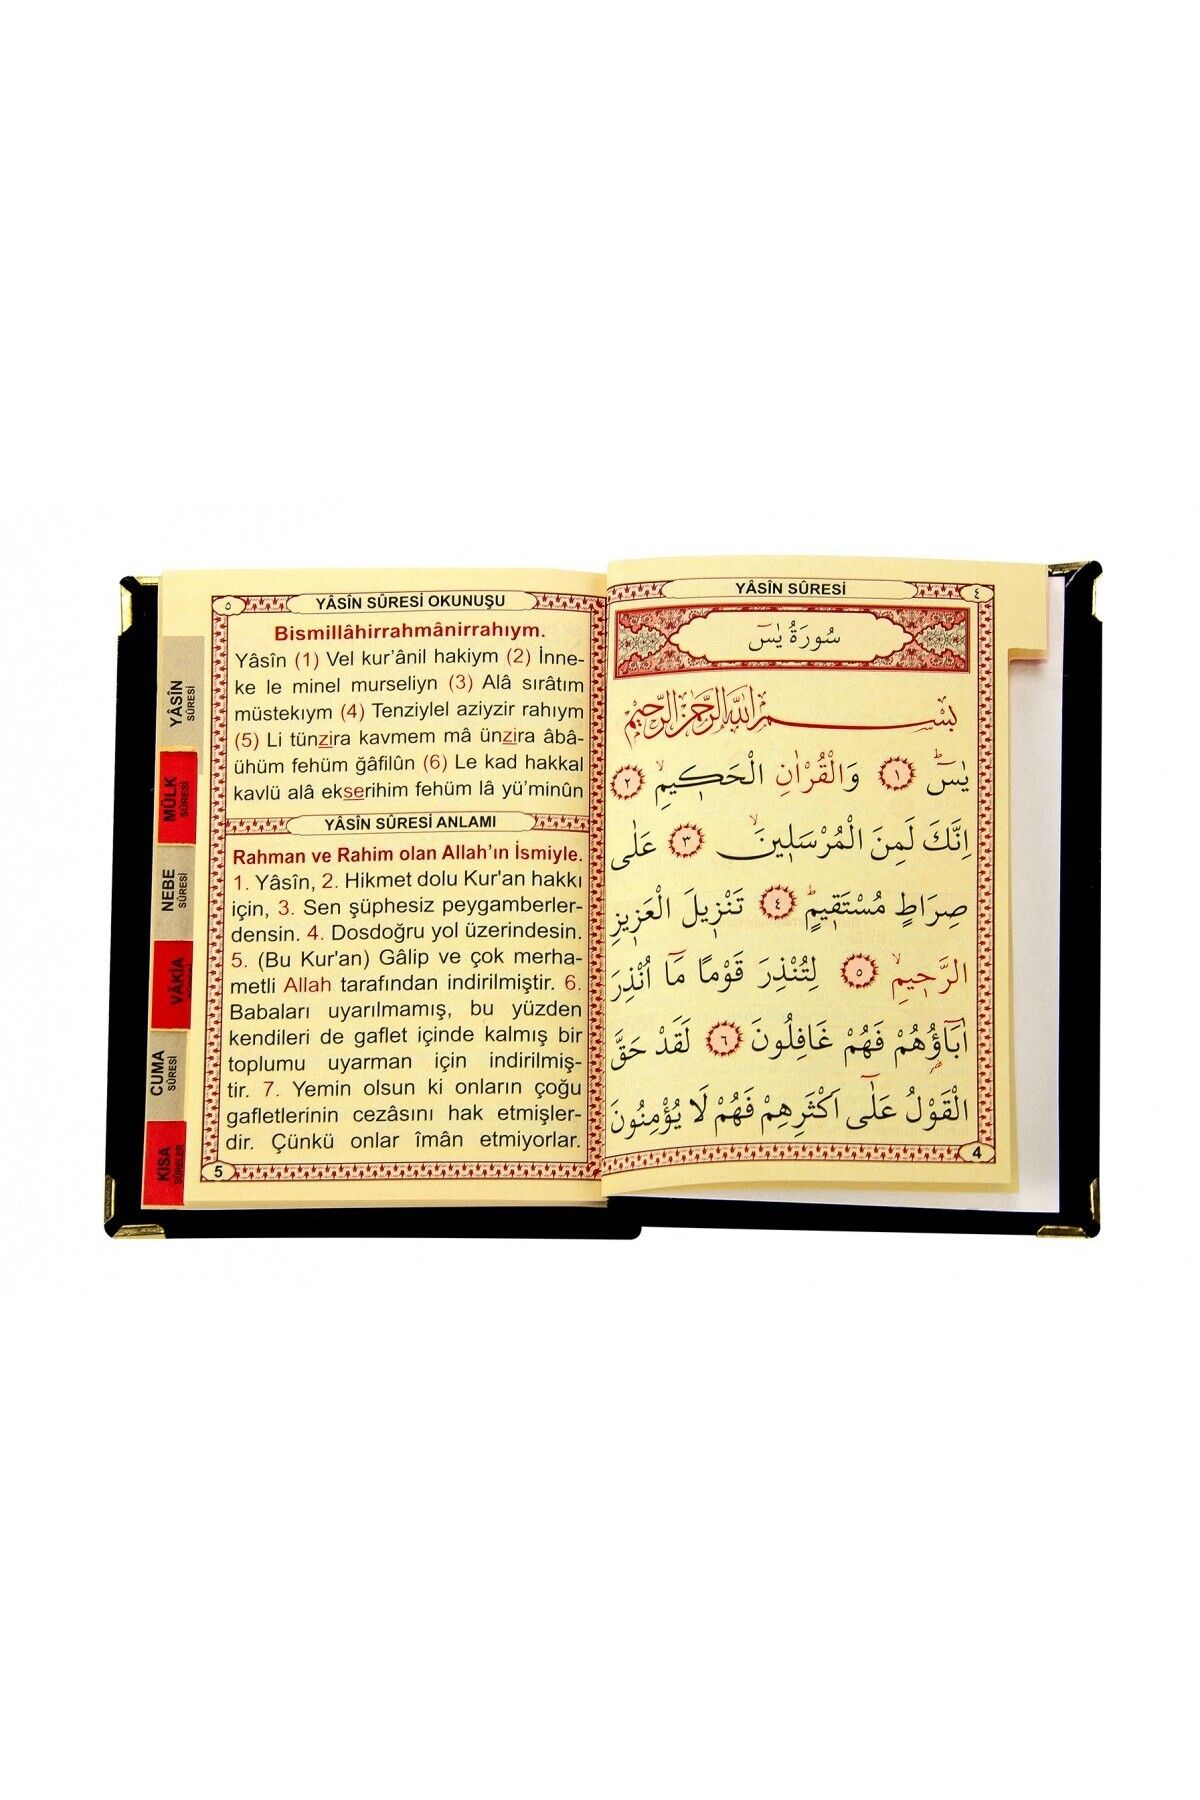 YÂSÎN SÛRESİ
٤
سُورَةُ يٰسٓ
بِسْمِ اللّٰهِ الرَّحْمٰنِ الرَّحِيمِ
يٰسٓ ﴿١﴾ وَالْقُرْاٰنِ الْحَكٖيمِ ﴿٢﴾
اِنَّكَ لَمِنَ الْمُرْسَلٖينَ ﴿٣﴾ عَلٰى
صِرَاطٍ مُسْتَقٖيمٍ ﴿٤﴾ تَنْزٖيلَ الْعَزٖيزِ
الرَّحٖيمِ ﴿٥﴾ لِتُنْذِرَ قَوْمًا مَٓا اُنْذِرَ
اٰبَٓاؤُهُمْ فَهُمْ غَافِلُونَ ﴿٦﴾ لَقَدْ حَقَّ
الْقَوْلُ عَلٰٓى اَكْثَرِهِمْ فَهُمْ لَا يُؤْمِنُونَ
4
٥
YÂSÎN SÛRESİ OKUNUŞU
Bismillâhirrahmânirrahıym.
Yâsîn (1) Vel kur’ânil hakiym (2) İnne-
ke le minel murseliyn (3) Alâ sırâtım
müstekıym (4) Tenziylel aziyzir rahıym
(5) Li tünzira kavmem mâ ünzira âbâ-
ühüm fehüm ğâfilûn (6) Le kad hakkal
kavlü alâ ekserihim fehüm lâ yü’minûn
YÂSÎN SÛRESİ ANLAMI
Rahman ve Rahim olan Allah’ın İsmiyle.
1. Yâsîn, 2. Hikmet dolu Kur'an hakkı
için, 3. Sen şüphesiz peygamberler-
densin. 4. Dosdoğru yol üzerindesin.
5. (Bu Kur'an) Gâlip ve çok merha-
metli Allah tarafından indirilmiştir. 6.
Babaları uyarılmamış, bu yüzden
kendileri de gaflet içinde kalmış bir
toplumu uyarman için indirilmiş-
tir. 7. Yemin olsun ki onların çoğu
gafletlerinin cezâsını hak etmişler-
dir. Çünkü onlar îmân etmiyorlar.
5
YÂSÎN
SÛRESİ
MÜLK
SÛRESİ
NEBE
SÛRESİ
VÂKİA
CUMA
SÛRESİ
KISA
SÛRELER